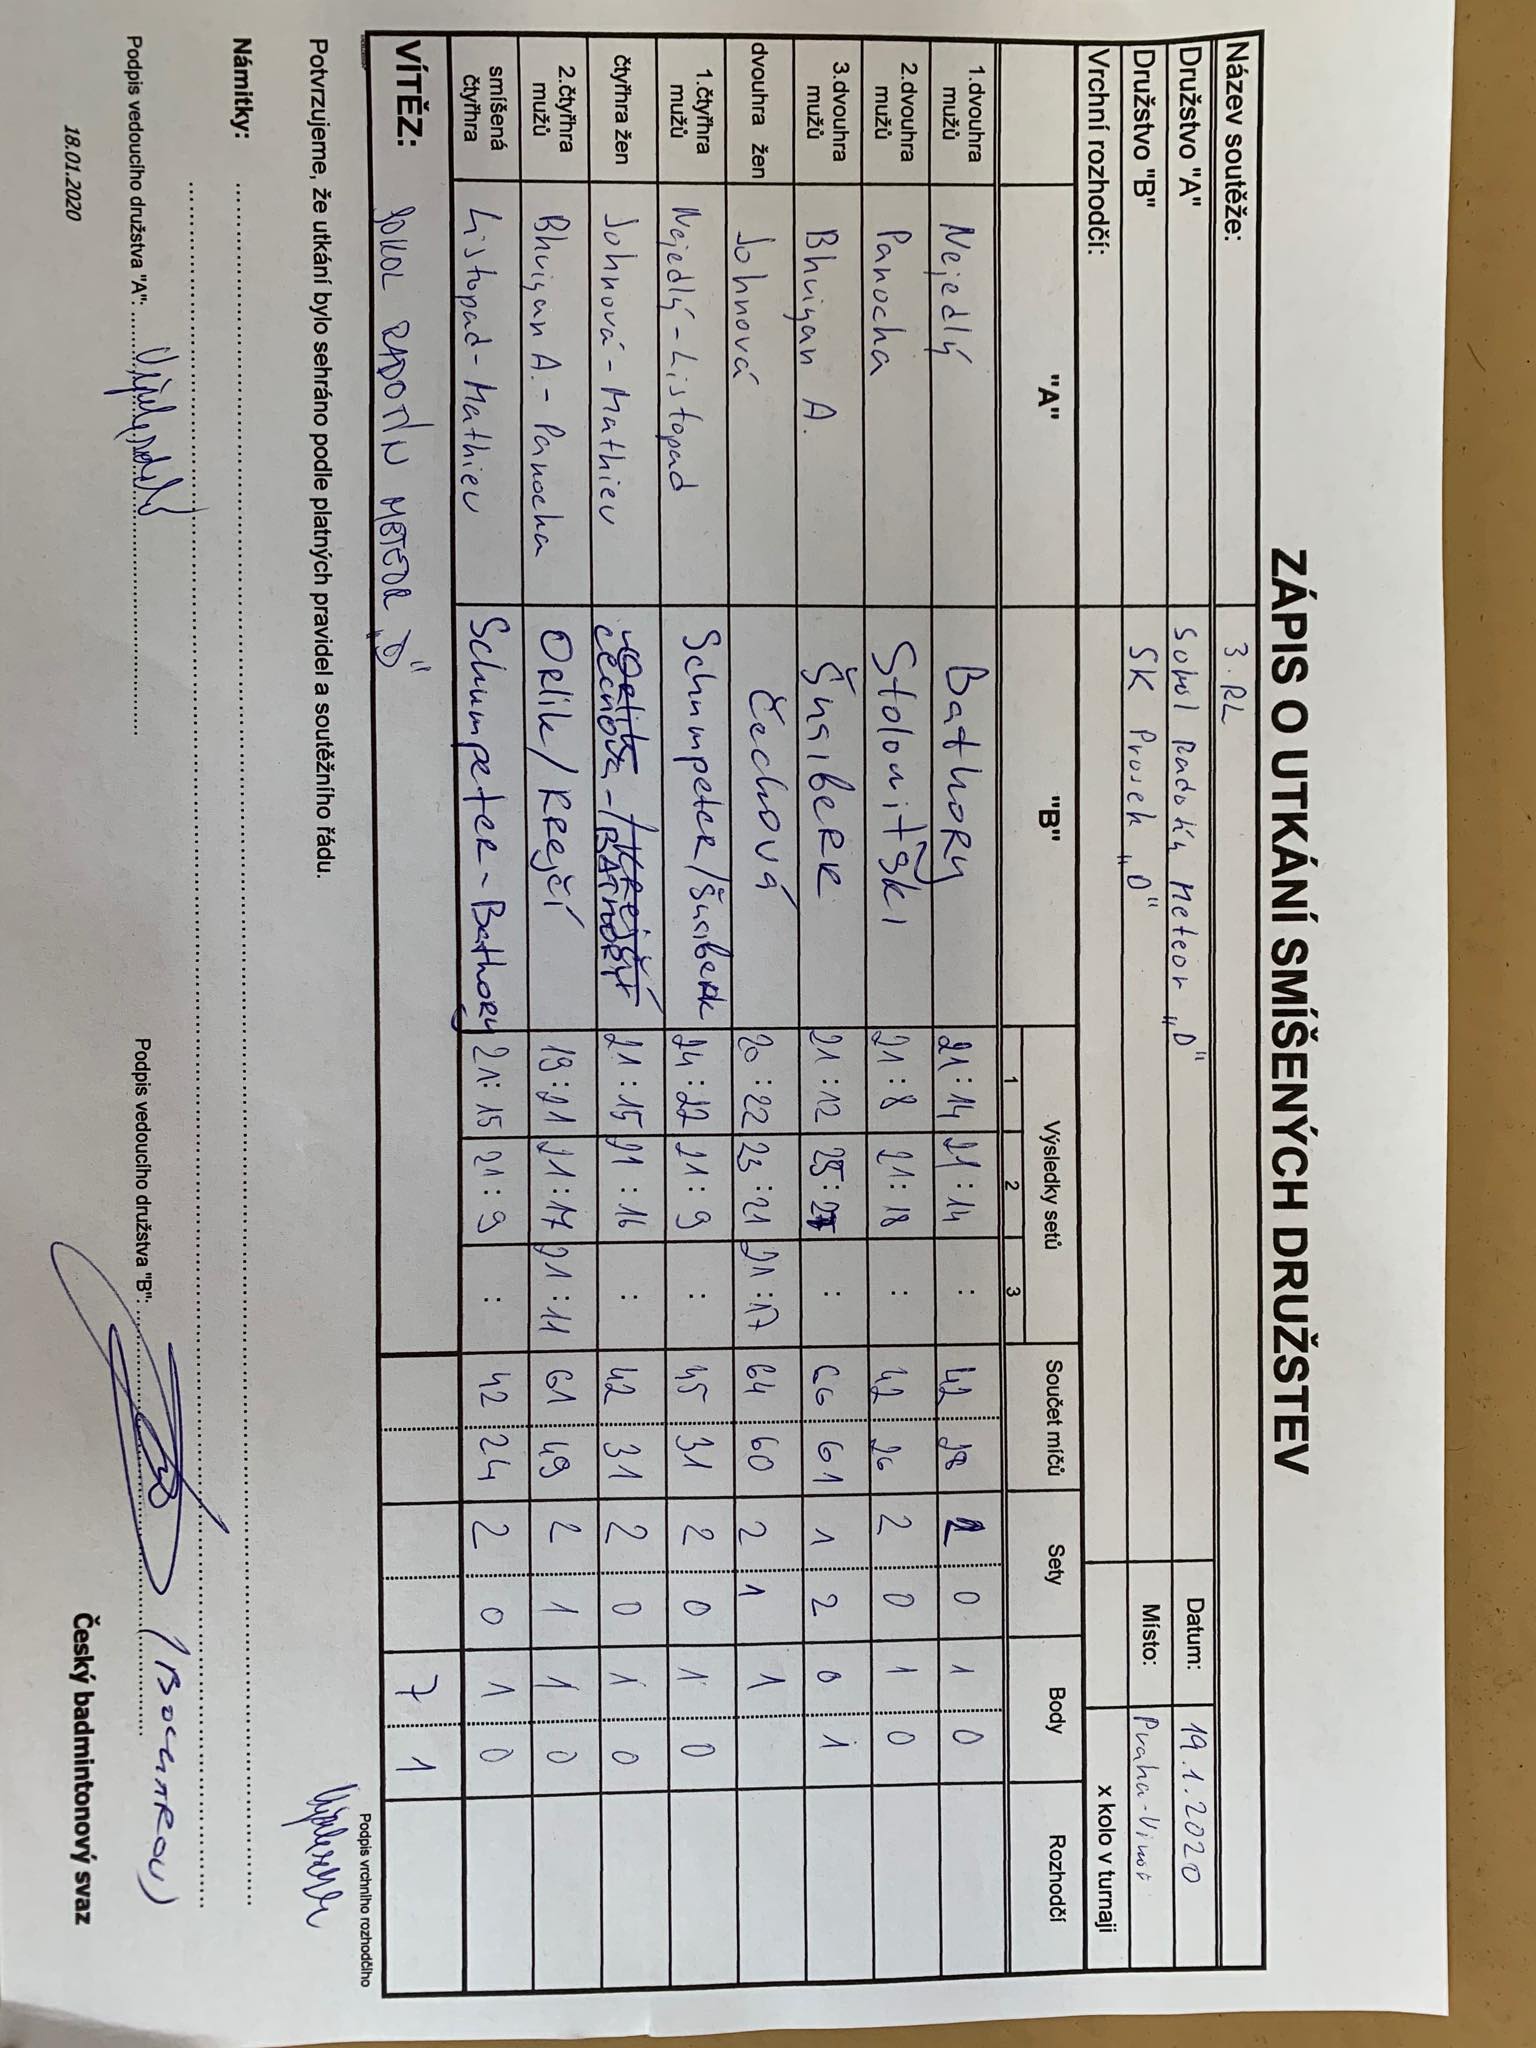 ZÁPIS O UTKÁNÍ SMÍŠENÝCH DRUŽSTEV
Název soutěže: 3. RL
Družstvo "A" Sokol Radotín Meteor „D" Datum: 19.1.2020
Družstvo "B" SK Prosek „D" Místo: Praha-Vinoř
Vrchní rozhodčí: x kolo v turnaji
"A" "B" Výsledky setů Součet míčů Sety Body Rozhodčí
1 2 3
1.dvouhra mužů Nejedlý Bathory 21:14 21:14 : 42 28 2 0 1 0
2.dvouhra mužů Panocha 21:8 21:18 : 42 26 2 0 1 0
3.dvouhra mužů Bhuiyan A. Šnaiberk 21:12 : 66 61 1 2 0 1
dvouhra žen Johnová Čechová 20:22 23:21 21:17 64 60 2 1 1
1.čtyřhra mužů Nejedlý-Listopad Schumpeter/Šnaiberk 24:22 21:9 : 45 31 2 0 1 0
čtyřhra žen Johnová-Mathieu 21:15 21:16 : 42 31 2 0 1 0
2.čtyřhra mužů Bhuiyan A.-Panocha Orlík/Krejčí 19:21 21:17 21:11 61 49 2 1 1 0
smíšená čtyřhra Listopad-Mathieu Schumpeter-Bathory 21:15 21:9 : 42 24 2 0 1 0
VÍTĚZ: SOKOL RADOTÍN METEOR „D" 7 1
Podpis vrchního rozhodčího
Potvrzujeme, že utkání bylo sehráno podle platných pravidel a soutěžního řádu.
Námitky:
Podpis vedoucího družstva "A": Podpis vedoucího družstva "B":
18.01.2020 Český badmintonový svaz